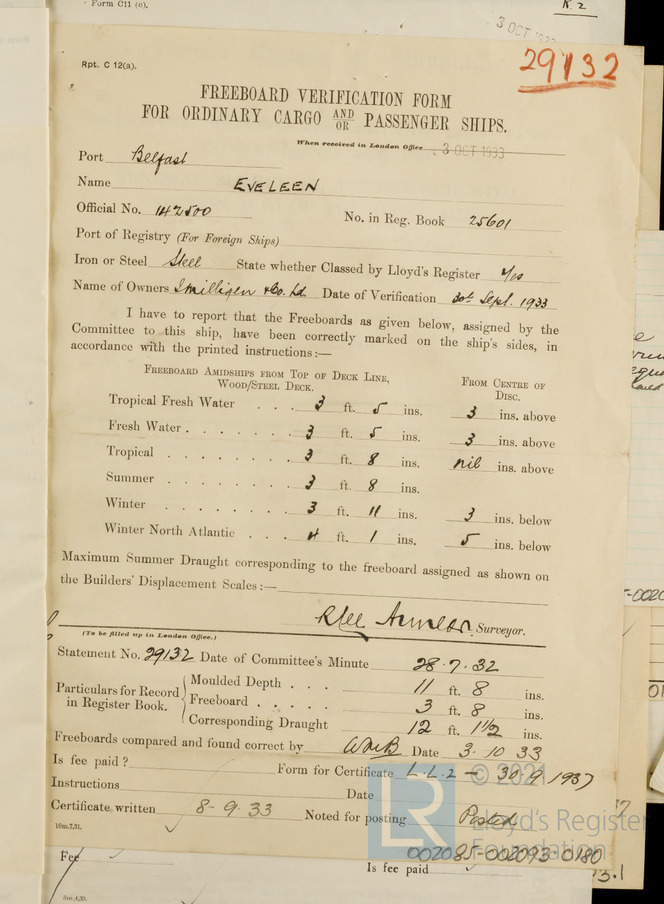 Form C11 (o).
R. 2
3 OCT 1933
29132
Rpt. C 12(a).
FREEBOARD VERIFICATION FORM
FOR ORDINARY CARGO AND OR PASSENGER SHIPS.
When received in London Office 3 OCT 1933
Port Belfast
Name EVELEEN
Official No. 142500
No. in Reg. Book 25601
Port of Registry (For Foreign Ships)
Iron or Steel Steel State whether Classed by Lloyd's Register Yes
Name of Owners J Milligen & Co. Ld. Date of Verification 30th Sept. 1933
I have to report that the Freeboards as given below, assigned by the
Committee to this ship, have been correctly marked on the ship's sides, in
accordance with the printed instructions:—
FREEBOARD AMIDSHIPS FROM TOP OF DECK LINE, FROM CENTRE OF
WOOD/STEEL DECK. DISC.
Tropical Fresh Water . . . 3 ft. 5 ins. 3 ins. above
Fresh Water . . . . . . 3 ft. 5 ins. 3 ins. above
Tropical . . . . . . . 3 ft. 8 ins. nil ins. above
Summer . . . . . . . 3 ft. 8 ins.
Winter . . . . . . . 3 ft. 11 ins. 3 ins. below
Winter North Atlantic . . . 4 ft. 1 ins. 5 ins. below
Maximum Summer Draught corresponding to the freeboard assigned as shown on
the Builders' Displacement Scales:—
Surveyor.
(To be filled up in London Office.)
Statement No. 29132 Date of Committee's Minute 28.7.32
Particulars for Record in Register Book.
Moulded Depth . . . 11 ft. 8 ins.
Freeboard . . . . . 3 ft. 8 ins.
Corresponding Draught 12 ft. 1½ ins.
Freeboards compared and found correct by Date 3.10 33
Is fee paid? Form for Certificate L.L.2 — 30.9 1937
Instructions Date
Certificate written 8-9.33 Noted for posting Posted
10m.7,31.
© 2021
LR
Lloyd's Register
Foundation
002085-002093-0180
Fee
Is fee paid
5m.4,33.